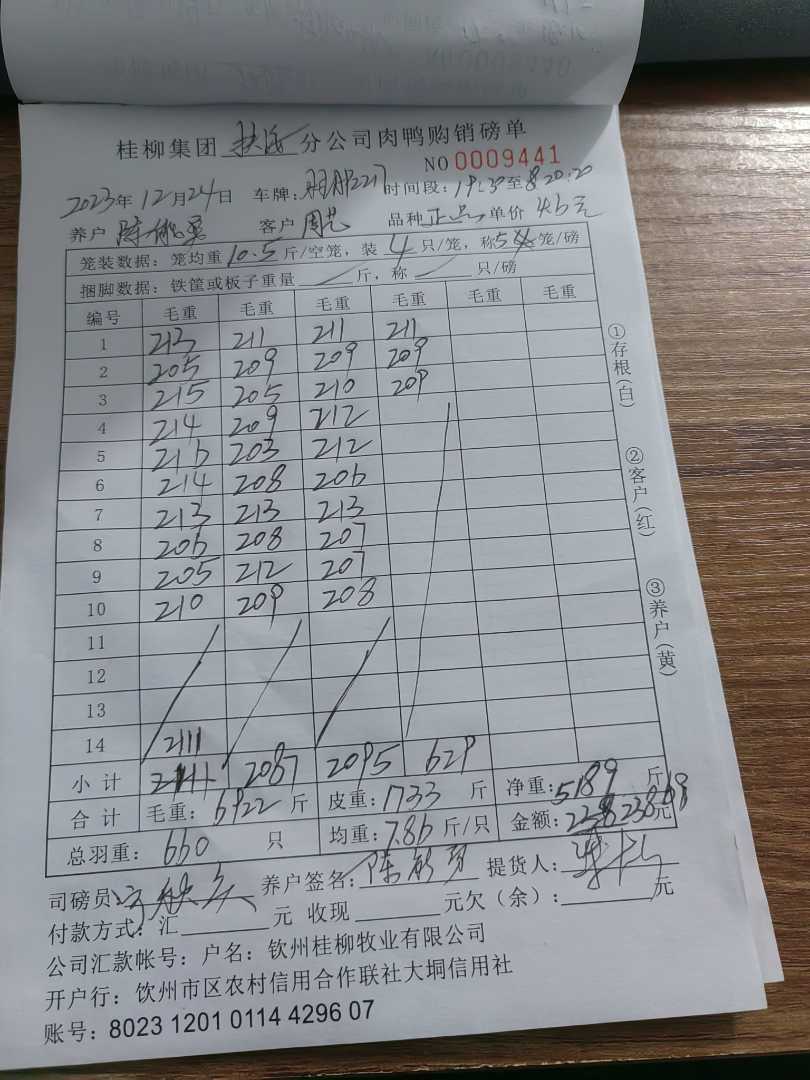 桂柳集团 分公司肉鸭购销磅单
NO 0009441
2023年12月24日 车牌: 时间段: 至 20:20
养户 陈 客户 周艺 品种 正品 单价 4.6元
笼装数据：笼均重 10.5 斤/空笼，装 4 只/笼，称 5 笼/磅
捆脚数据：铁筐或板子重量 斤，称 只/磅
编号 毛重 毛重 毛重 毛重 毛重 毛重
1 213 211 211 211
2 205 209 209 209
3 215 205 210 209
4 214 209 212
5 216 203 212
6 214 208 206
7 213 213 213
8 206 208 207
9 205 212 207
10 210 209 208
11
12
13
14 2111
小计 2087 2095 629
合计 毛重：6922 斤 皮重：1733 斤 净重：5189 斤
总羽重：660 只 均重：7.86 斤/只 金额： 元
司磅员： 养户签名：陈 提货人：
付款方式：汇 元 收现 元欠（余）： 元
公司汇款帐号：户名：钦州桂柳牧业有限公司
开户行：钦州市区农村信用合作联社大垌信用社
账号：8023 1201 0114 4296 07
①存根(白)
②客户(红)
③养户(黄)